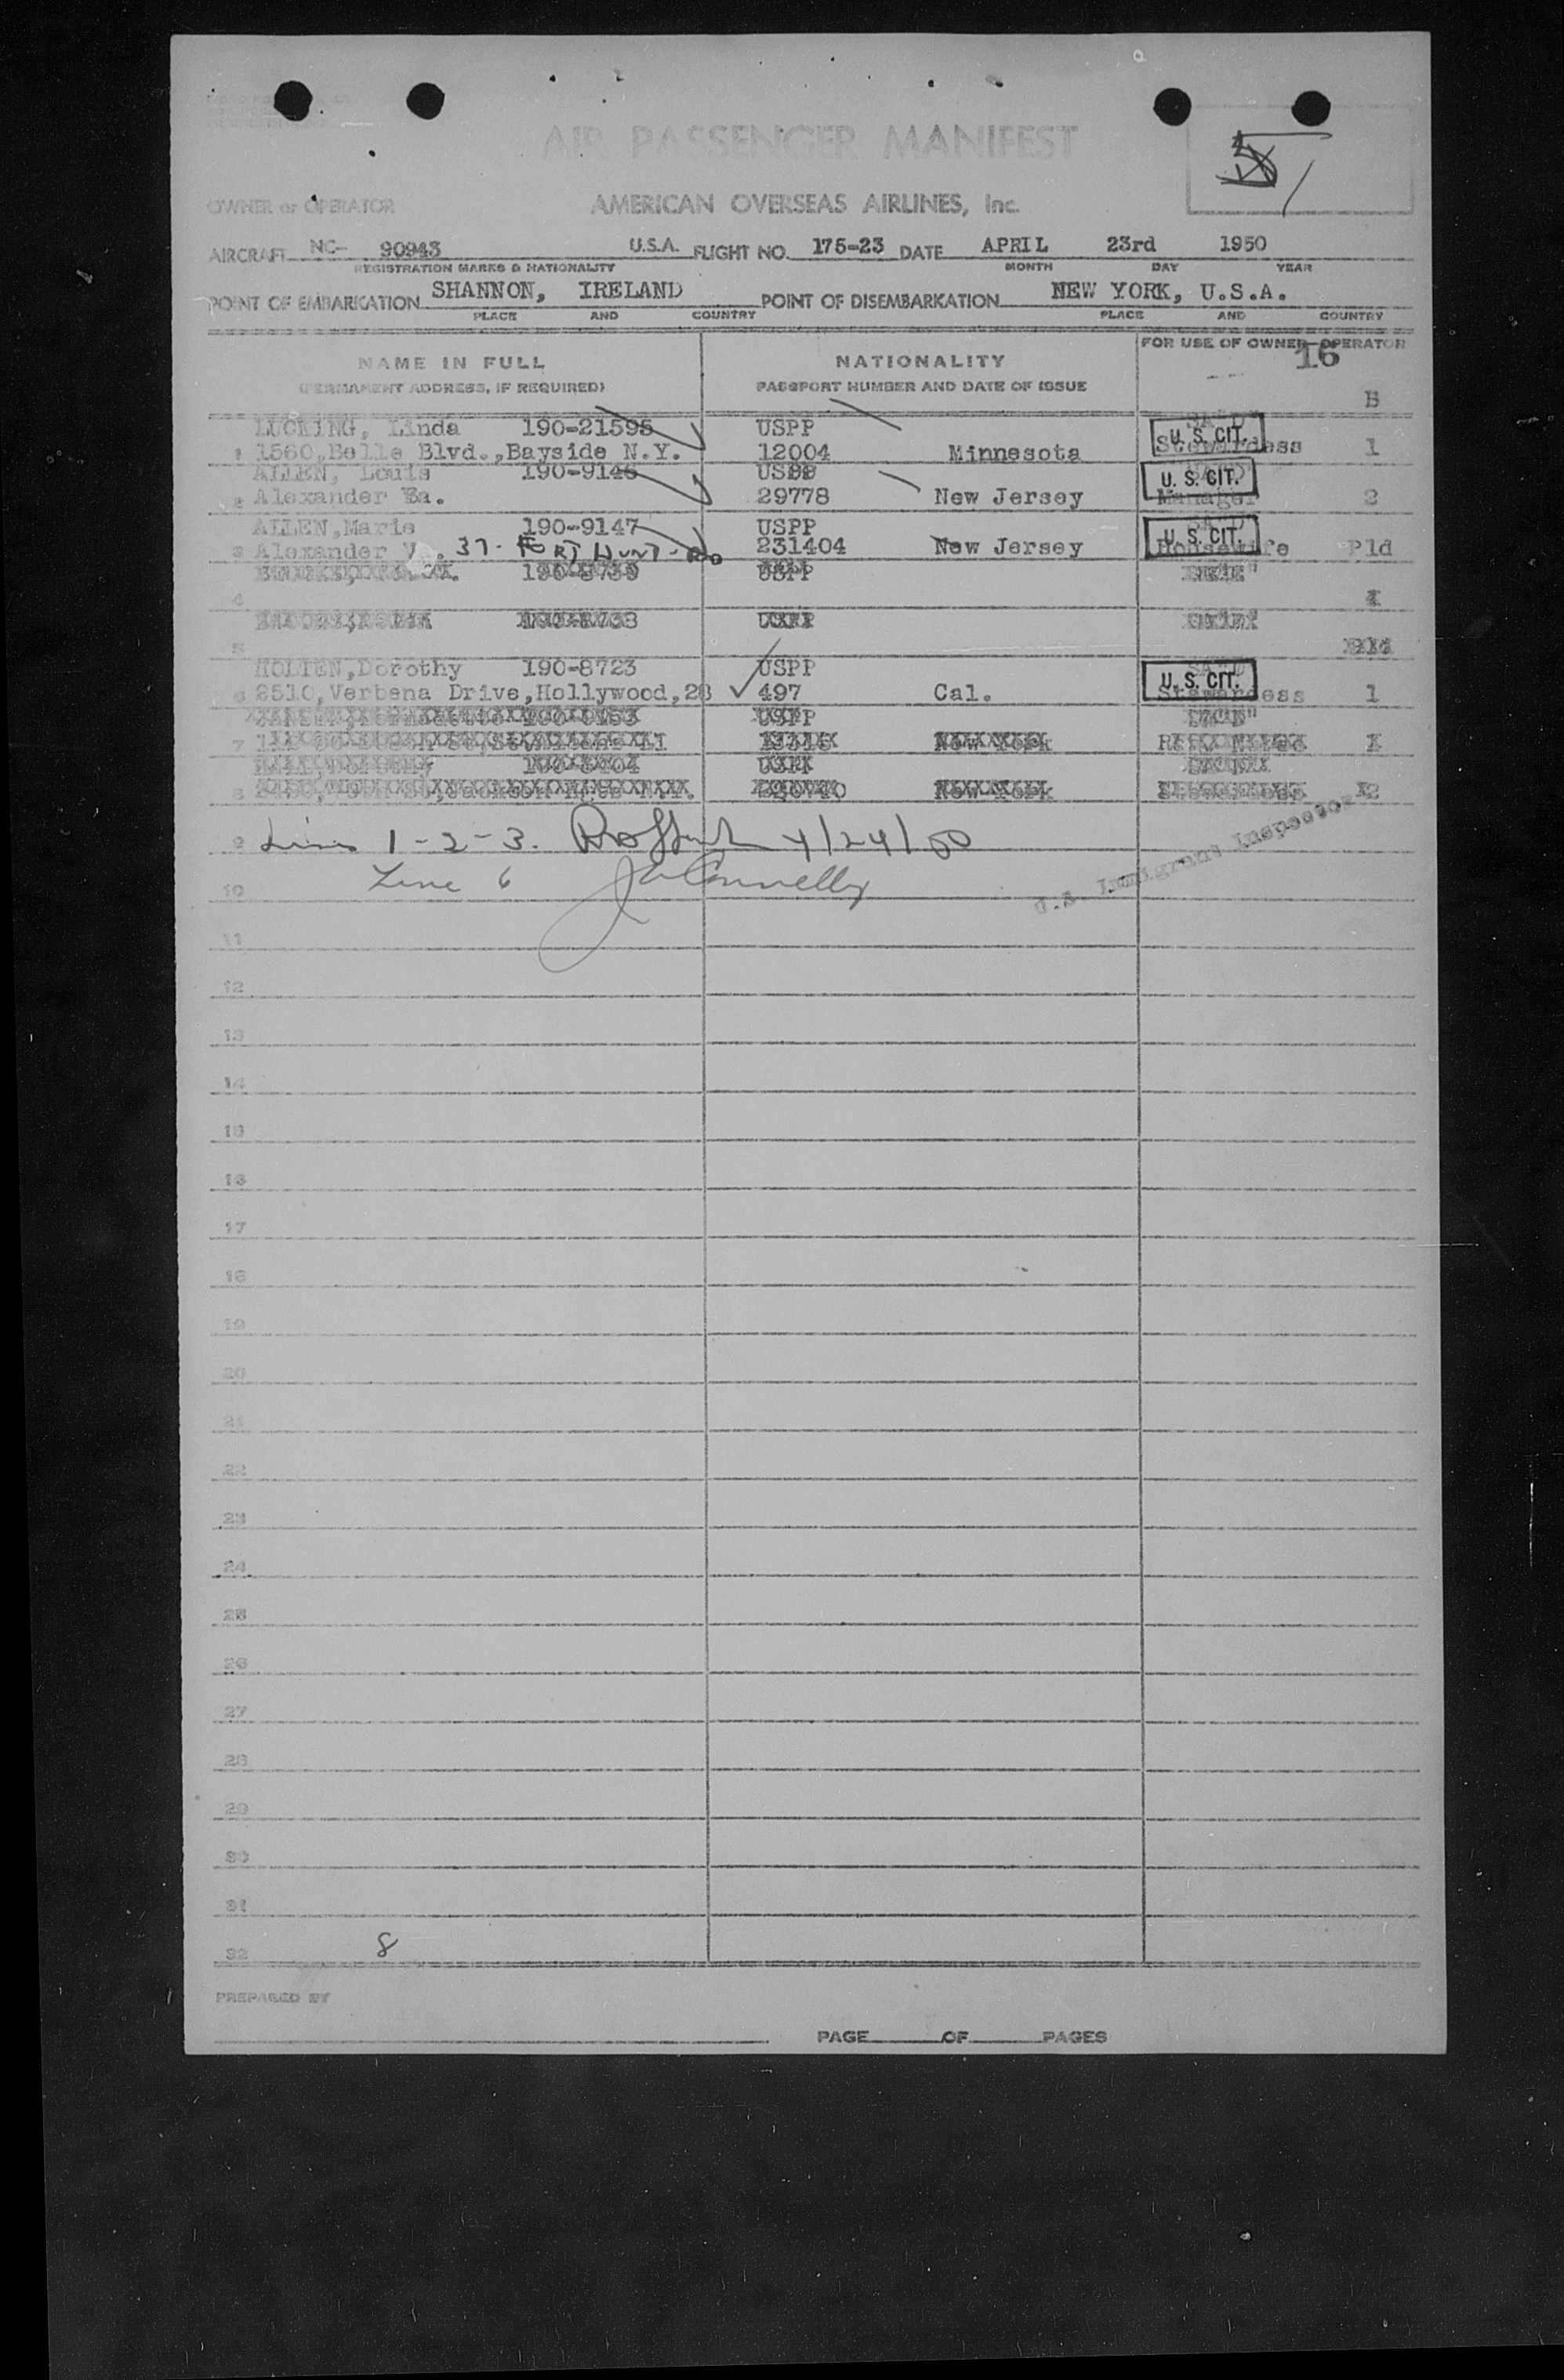 AIR PASSENGER MANIFEST
OWNER or OPERATOR AMERICAN OVERSEAS AIRLINES, Inc.
AIRCRAFT NC- 90943 U.S.A. FLIGHT NO. 175-23 DATE APRIL 23rd 1950
REGISTRATION MARKS & NATIONALITY MONTH DAY YEAR
POINT OF EMBARKATION SHANNON, IRELAND POINT OF DISEMBARKATION NEW YORK, U.S.A.
PLACE AND COUNTRY PLACE AND COUNTRY
NAME IN FULL NATIONALITY FOR USE OF OWNER-OPERATOR
16
(PERMANENT ADDRESS, IF REQUIRED) PASSPORT NUMBER AND DATE OF ISSUE
B
LUCKING, Linda 190-21595 USPP
U. S. CIT.
1 1560,Belle Blvd.,Bayside N.Y. 12004 Minnesota Stewardess 1
ALLEN, Louis 190-9146
U. S. CIT.
2 Alexander 29778 New Jersey Manager 2
ALLEN,Marie 190-9147 USPP
U. S. CIT.
3 Alexander V . 37- FORT HUNT-RD 231404 New Jersey Housewife Pld
USPP
4
5
HOLTEN,Dorothy 190-8723 USPP
U. S. CIT.
6 2510,Verbena Drive,Hollywood,28 497 Cal. Stewardess 1
7 New York
8 New York
9 Lines 1-2-3. 4/24/50
10 Line 6 J Connelly U.S. Immigrant Inspector
11
12
13
14
15
16
17
18
19
20
21
22
23
24
25
26
27
28
29
30
31
32 8
PREPARED BY
PAGE OF PAGES